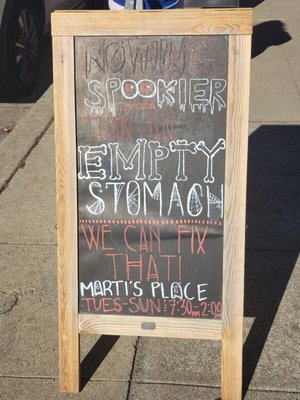 NOTHING
SPOOKIER
THAN AN
EMPTY
STOMACH
WE CAN FIX
THAT!
MARTI'S PLACE
TUES-SUN: 7:30AM 2:00PM